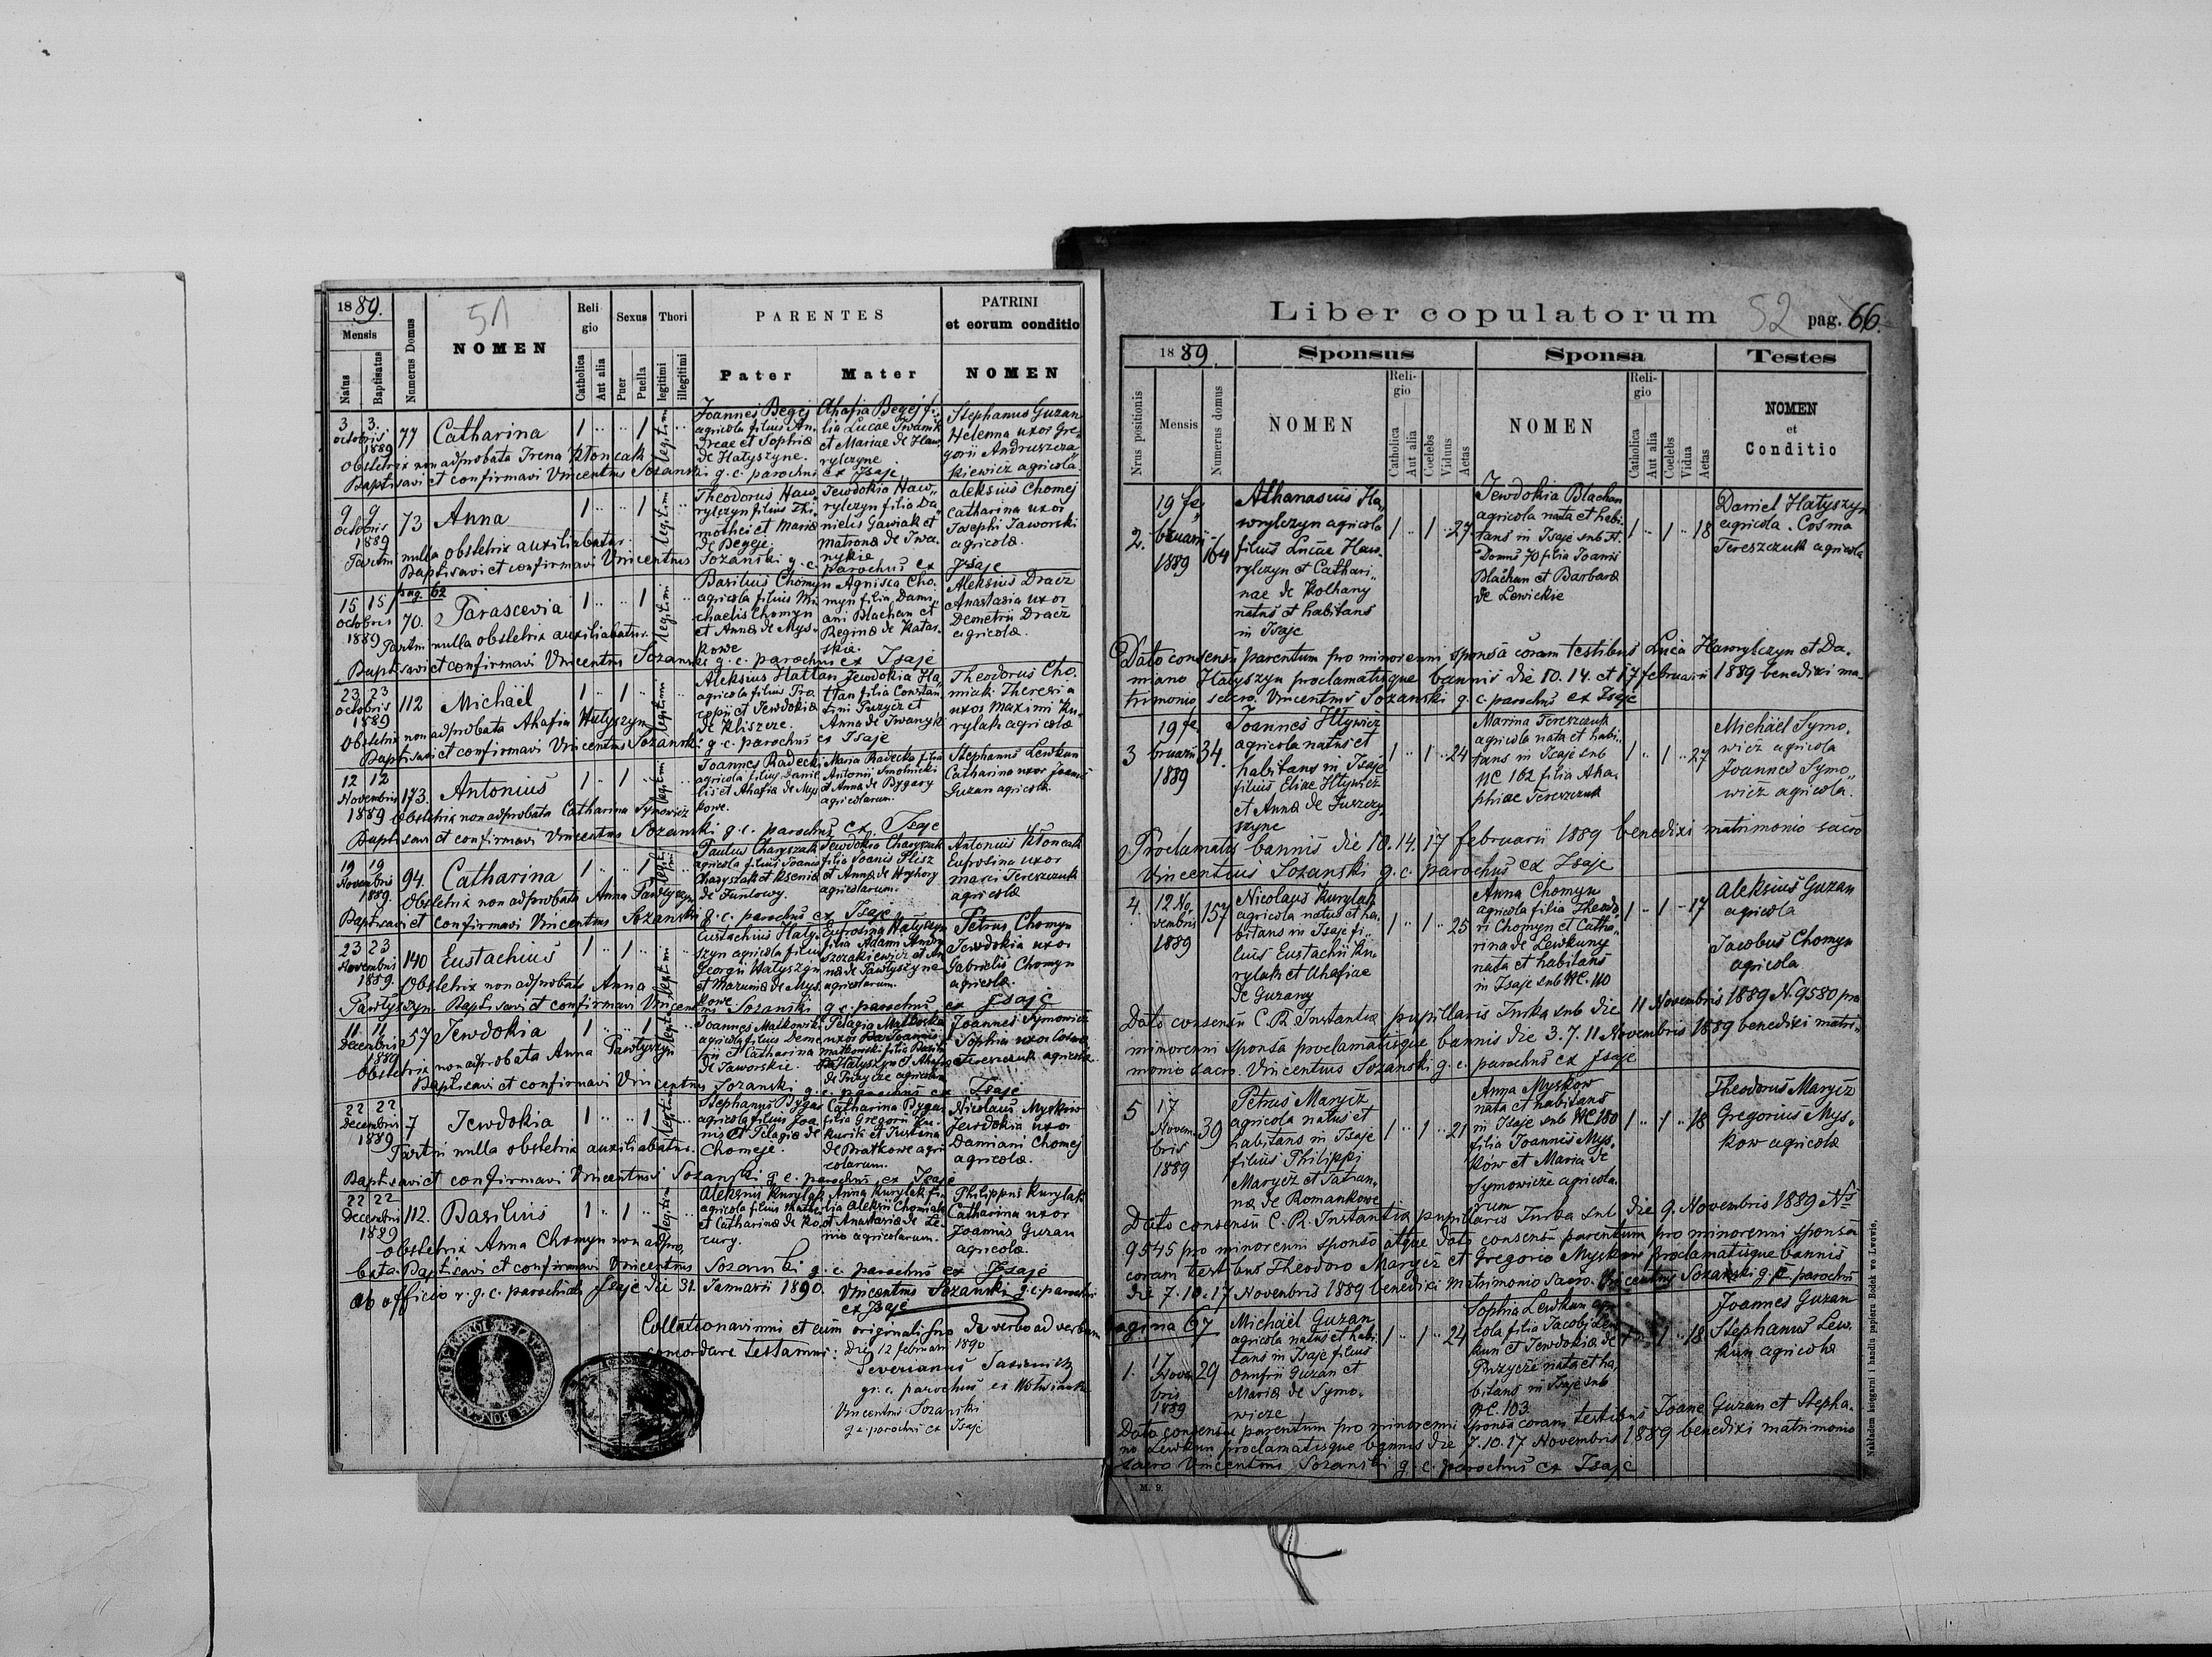 1889.
Mensis
Natus
Baptisatus
Numerus Domus
51
NOMEN
Reli
gio
Catholica
Aut alia
Sexus
Puer
Puella
Thori
legitimi
illegitimi
PARENTES
Pater Mater
PATRINI
et eorum conditio
NOMEN
3 3.
octobris
1889
77
Catharina
1 .. .. 1
legitimi
Joannes Begej
agricola filius An-
dreae et Sophiae
de Hatyszyne.
Ahafia Begej fi-
lia Lucae Iwanik
et Mariae de Haw-
rylczyne
Stephanus Guzan
Helenna uxor Gre-
gorii Andruszcza-
kiewicz agricolae
Obstetrix non adprobata Irena Kłoncak
Baptisavi et confirmavi Vincentius Sozanski g. c. parochus ex Isaje
9 9
octobris
1889
73
Anna
1 .. .. 1
legitimi
Theodorus Haw-
rylczyn filius Thi-
mothei et Mariae
de Begeje.
Jewdokia Haw-
rylczyn filia Da-
nielis Gawiak et
Matronae de Iwa-
nykie
Aleksius Chomej
Catharina uxor
Josephi Jaworski
agricolae.
Partui nulla obstetrix auxiliabatur.
Baptisavi et confirmavi Vincentius Sozanski g. c. parochus ex Isaje
pag. 62
15 15
octobris
1889
70.
Parascevia
1 .. .. 1
legitimi
Basilius Chomyn
agricola filius Mi-
chaelis Chomyn
et Annae de Mys-
kowe
Agnisca Cho-
myn filia Dami-
ani Blachan et
Reginae de Katar-
skie.
Aleksius Dracz
Anastasia uxor
Demetrii Dracz
agricolae.
Partui nulla obstetrix auxiliabatur.
Baptisavi et confirmavi Vincentius Sozanski g. c. parochus ex Isaje
23 23
octobris
1889
112
Michaël
1 .. 1 ..
legitimi
Aleksius Hattan
agricola filius Pro-
copii et Jewdokiae
de Kliszcze.
Jewdokia Ha-
ttan filia Constan-
tini Puzycz et
Anna de Iwanyk
Theodorus Cho-
miak Theresia
uxor Maximi Ku-
rylak agricolae
Obstetrix non adprobata Ahafia Hatyszyn
Baptisavi et confirmavi Vincentius Sozanski g. c. parochus ex Isaje
12 12
Novembris
1889
173.
Antonius
1 .. 1 ..
legitimi
Joannes Radecki
agricola filius Danie-
lis et Ahafiae de Mys-
kowe.
Maria Radecka filia
Antonii Smolnicki
et Anna de Bygary
agricolarum.
Stephanus Lewkun
Catharina uxor Joannis
Guzan agricolae.
Obstetrix non adprobata Catharina Symowicz
Baptisavi et confirmavi Vincentius Sozanski g. c. parochus ex Isaje
19 19
Novembris
1889.
94.
Catharina
1 .. .. 1
Paulus Charyszak
agricola filius Joanis
Charyszak et Kseniae
de Funtowy.
Jewdokia Charyszak
filia Joanis Plisz
et Annae de Hryhory
agricolarum.
Antonius Kłoncak
Eufrosina uxor
Marci Tereszczuk
agricolae
Obstetrix non adprobata Anna Pawłyszyn
Baptisavi et confirmavi Vincentius Sozanski g. c. parochus ex Isaje
23 23
Novembris
1889.
140
Eustachius
1 .. 1 ..
legitimi
Eustachius Haty-
szyn agricola filius
Georgii Hatyszyn
et Mariae de Mys-
kowe
Eufrosina Hatyszyn
filia Adami Andru-
szczakiewicz et An-
nae de Pawłyszyne
agricolarum.
Petrus Chomyn
Jewdokia uxor
Gabrielis Chomyn
agricolae.
Obstetrix non adprobata Anna
Pawłyszyn Baptisavi et confirmavi Vincentius Sozanski g. c. parochus ex Isaje
11. 11
Decembris
1889
57
Jewdokia
1 .. .. 1
Joannes Matkowski
agricola filius Deme-
trii et Catharina
de Jaworskie.
Pelagia Matkowska
uxor Joannis
Matkowski filia Basilii
Hatyszyn et Ahafiae
de Przycze agricolarum
Joannes Symowicz
Sophia uxor Cosmae
Tereszczuk agricolae
Obstetrix non adprobata Anna Pawłyszyn
Baptisavi et confirmavi Vincentius Sozanski g. c. parochus ex Isaje
22 22
Decembris
1889
7
Jewdokia
1 .. .. 1
legitimi
Stephanus Bygar
agricola filius Joa-
nis et Pelagiae de
Chomeje.
Catharina Bygar
filia Gregorii Ku-
ruski et Justina
de Bratkowe agri-
colarum.
Nicolaus Myskow
Jewdokia uxor
Damiani Chomej
agricolae.
Partui nulla obstetrix auxiliabatur.
Baptisavi et confirmavi Vincentius Sozanski g. c. parochus ex Isaje
22 22
Decembris
1889
112.
Basilius
1 .. 1 ..
legitimi
Aleksius Kurylak
agricola filius Mathei
et Catharinae de Ko-
cury.
Anna Kurylak fi-
lia Aleksii Chomiak
et Anastasiae de Le-
nio agricolarum.
Philippus Kurylak
Catharina uxor
Joannis Guzan
agricolae.
Obstetrix Anna Chomyn non adpro-
bata. Baptisavi et confirmavi Vincentius Sozanski g. c. parochus ex Isaje
Ab officio r. g. c. parochiali Isaje die 31. Januarii 1890. Vincentius Sozanski g. c. parochus
ex Isaje
Collationavimus et cum originali suo de verbo ad verbum
concordare testamur: die 12 februarii 1890
Severianus Jasienicki
gr. c. parochus ex Wołosianka
Vincentius Sozanski
g. c. parochus ex Isaje
Liber copulatorum 52 pag. 66.
1889.
Nrus positionis
Mensis
Numerus domus
Sponsus
NOMEN
Reli-
gio
Catholica
Aut alia
Coelebs
Viduus
Aetas
Sponsa
NOMEN
Reli-
gio
Catholica
Aut alia
Coelebs
Vidua
Aetas
Testes
NOMEN
et
Conditio
2.
19 fe-
bruarii
1889
164
Athanasius Ha-
wrylczyn agricola
filius Lucae Haw-
rylczyn et Cathari-
nae de Kolhany
natus et habitans
in Isaje
1 .. 1 .. 27
Jewdokia Blachan
agricola nata et habi-
tans in Isaje sub N.
Domus 70 filia Joannis
Blachan et Barbarae
de Lewickie
1 .. 1 .. 18
Daniel Hatyszyn
agricola. Cosma
Tereszczuk agricola
Dato consensu parentum pro minorenni sponsa coram testibus Luca Hawrylczyn et Da-
miano Hatyszyn proclamatisque bannis die 10. 14. et 17 februarii 1889 benedixi ma-
trimonio sacro. Vincentius Sozanski g. c. parochus ex Isaje
3
19 fe-
bruarii
1889
34.
Joannes Iłtywicz
agricola natus et
habitans in Isaje
filius Eliae Iłtywicz
et Annae de Juszczy-
szyne
1 .. 1 .. 24
Marina Tereszczuk
agricola nata et habi-
tans in Isaje sub
NC 162 filia Aha-
phiae Tereszczuk
1 .. 1 .. 27
Michaël Symo-
wicz agricola
Joannes Symo-
wicz agricola.
Proclamatis bannis die 10. 14. 17 februarii 1889 benedixi matrimonio sacro
Vincentius Sozanski g. c. parochus ex Isaje
4.
12 No-
vembris
1889
157
Nicolaus Kurylak
agricola natus et ha-
bitans in Isaje fi-
lius Eustachii Ku-
rylak et Ahafiae
de Guzany
1 .. 1 .. 25
Anna Chomyn
agricola filia Theodo-
ri Chomyn et Catha-
rina de Lewkuny
nata et habitans
in Isaje sub NC. 110
1 .. 1 .. 17
Aleksius Guzan
agricola
Jacobus Chomyn
agricola
Dato consensu C. R. Instantiae pupillaris Turka sub die 11 Novembris 1889 N. 9580 pro
minorenni sponsa proclamatisque bannis die 3. 7. 11 Novembris 1889 benedixi matri-
monio sacro. Vincentius Sozanski g. c. parochus ex Isaje
5
17
Novem-
bris
1889
39
Petrus Marycz
agricola natus et
habitans in Isaje
filius Philippi
Marycz et Tatian-
nae de Romankowe
1 .. 1 .. 21
Anna Myskow
nata et habitans
in Isaje sub NC 180
filia Joannis Mys-
ków et Maria de
Symowicze agricola-
rum
1 .. 1 .. 18
Theodorus Marycz
Gregorius Mys-
kow agricolae
Dato consensu C. R. Instantiae pupillaris Turka sub die 9. Novembris 1889 No
9545 pro minorenni sponso atque dato consensu parentum pro minorenni sponsa
coram testibus Theodoro Marycz et Gregorio Myskow proclamatisque bannis
die 7. 10. 17 Novembris 1889 benedixi matrimonio sacro. Vincentius Sozanski g. c. parochus
pagina 67
1.
17
Novem-
bris
1889
29
Michaël Guzan
agricola natus et habi-
tans in Isaje filius
Onufrii Guzan et
Mariae de Symo-
wicze
1 .. 1 .. 24
Sophia Lewkun agri-
cola filia Jacobi Lew-
kun et Jewdokiae de
Przycze nata et ha-
bitans in Isaje sub
NC. 103
1 .. 1 .. 18
Joannes Guzan
Stephanus Lew-
kun agricolae
Dato consensu parentum pro minorenni sponsa coram testibus Joane Guzan et Stepha-
no Lewkun proclamatisque bannis die 7. 10. 17 Novembris 1889 benedixi matrimonio
sacro Vincentius Sozanski g. c. parochus ex Isaje
M. 9.
Nakładem księgarni i handlu papieru Bodek we Lwowie.